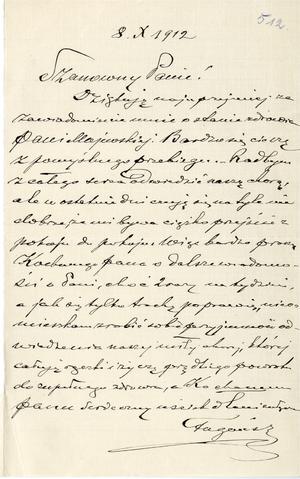 512
8. X 1912
Szanowny Panie!
Dziękuję najuprzejmiej za
zawiadomienie mnie o stanie zdrowia
Pani Majewskiej. Bardzo się cieszę
z pomyślnego przebiegu. Radbym
z całego serca odwiedzić naszą chorą,
ale w ostatnie dni czuję się na tyle nie
dobrze, że mi bywa ciężko przejść z
pokoju do pokoju. Więc bardzo proszę
Kochanego Pana o dalsze wiadomo-
ści o Pani, choć 2 razy na tydzień,
a jak się tylko trochę poprawię, nie o-
mieszkam zrobić sobie przyjemność od
wiedzenia naszej miłej chorej, której
całuję rączki i życzę prędkiego powrotu
do zupełnego zdrowia, a Kochanemu
Panu serdeczny uścisk dłoni